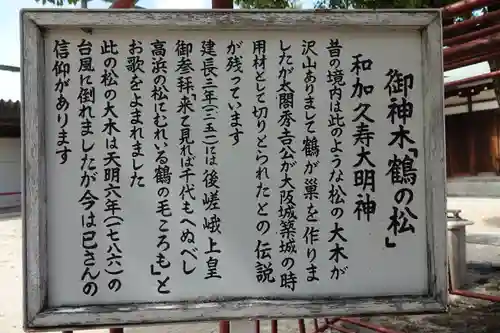 御神木「鶴の松」
和加久寿大明神
昔の境内は此のような松の大木が
沢山ありまして鶴が巣を作りま
したが太閤秀吉公が大阪城築城の時
用材として切りとられたとの伝説
が残っています
建長三年(一二五一)には後嵯峨上皇
御参拝来て見れば千代もへぬべし
高浜の松にむれいる鶴の毛ころも」と
お歌をよまれました
此の松の大木は天明六年(一七八六)の
台風に倒れましたが今は巳さんの
信仰があります